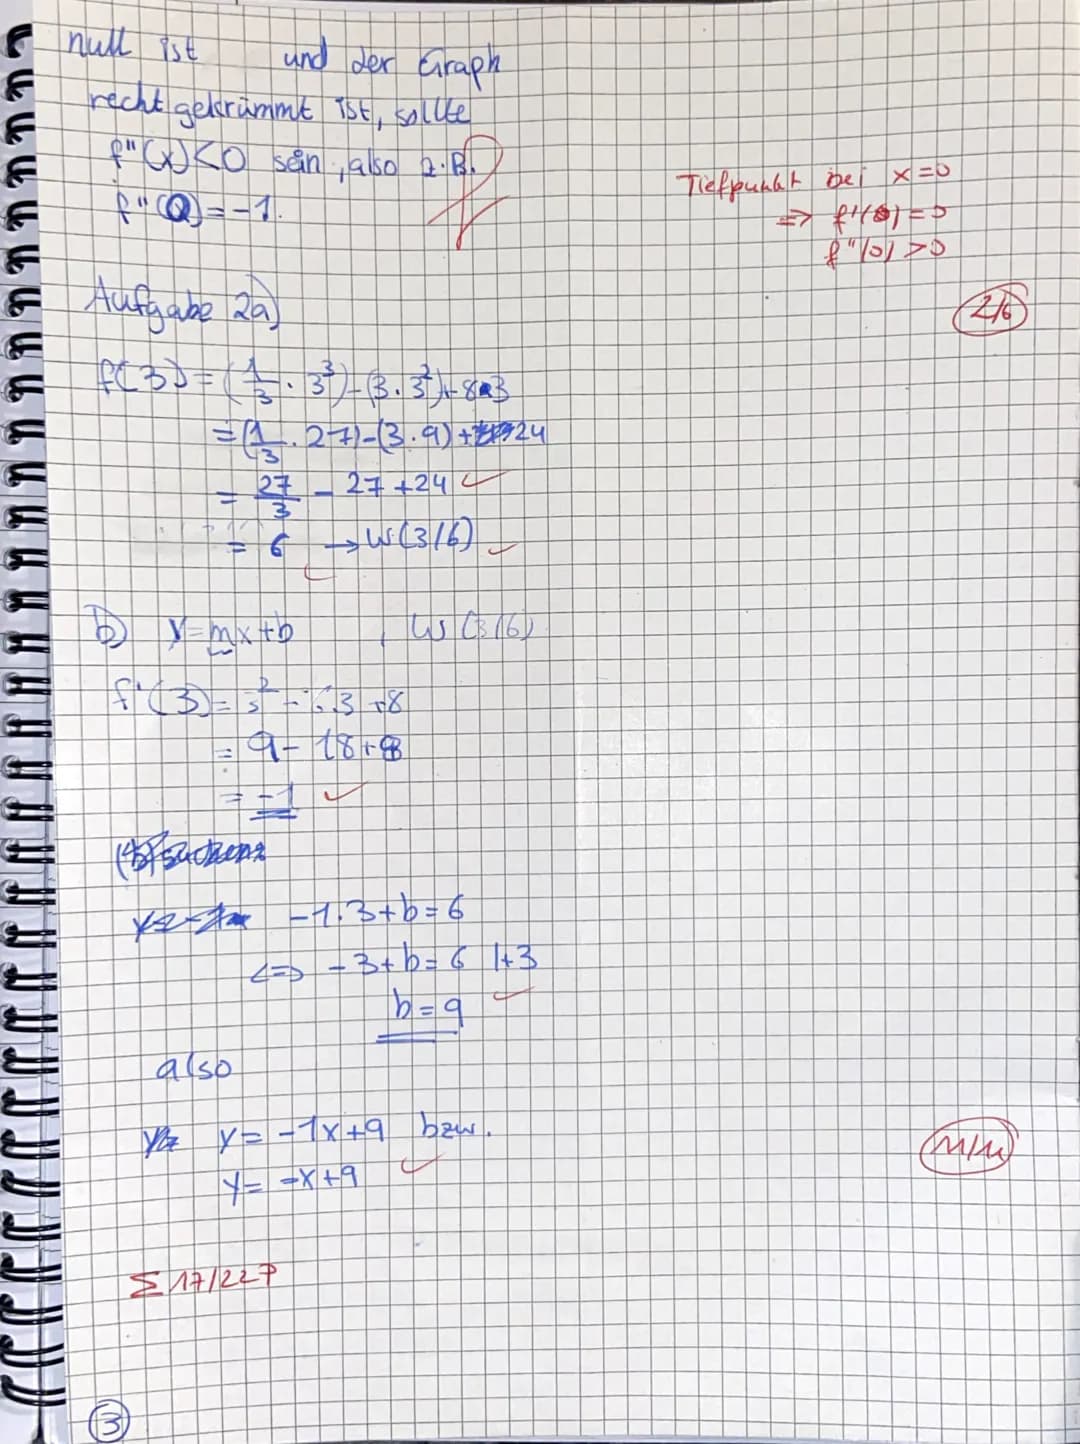 null ist und der Graph
recht gekrümmt ist, sollte
f''(x)<0 sein, also z.B.
f''(0)=-1.
Tiefpunkt bei x=0
=> f'(0)=0
f''(0)>0
2/6
Aufgabe 2a)
f(3)=(1/3 · 3³)-(3·3²)+8·3
=(1/3 · 27)-(3·9)+24
= 27/3 - 27+24
= 6 → W(3/6)
b) y=mx+b , W(3/6)
f'(3)=3²-6·3+8
= 9-18+8
= -1
-1·3+b=6
<=> -3+b=6 |+3
b=9
also
y= -1x+9 bzw.
y= -x+9
11/11
Σ 17/22P
3